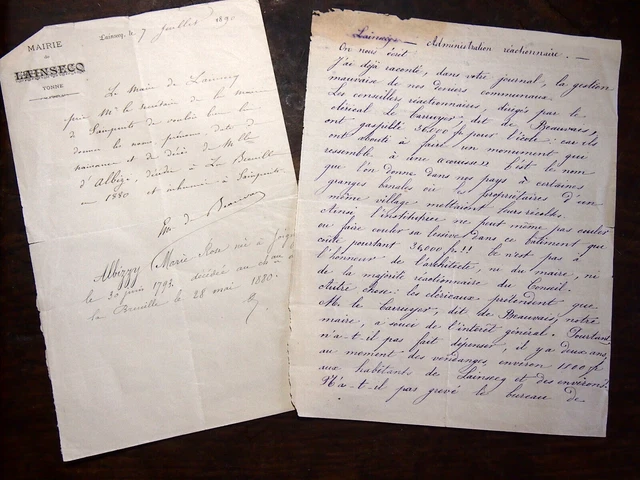 MAIRIE
de
LAINSECQ
YONNE
Lainsecq, le 7 Juillet 1890
Le Maire de Lainsecq
prie Mr le secrétaire de la mairie
de Sainpuits de vouloir bien lui
donner les noms, prénoms, date de
naissance et de décès de Melle
d'Albizzy, décédée à La Breuille
en 1880 et inhumée à Sainpuits
Em. de Beauvais
Albizzy Marie Rose née à Joigny
le 30 juin 1793, décédée au
la Breuille le 28 mai 1880.
Lainsecq. — Administration réactionnaire. —
On nous écrit
J'ai déjà raconté, dans votre journal, la gestion
mauvaise de nos deniers communaux.
Les conseillers réactionnaires, dirigés par le
clérical Le Carruyer, dit de Beauvais,
ont gaspillé 36000 fr pour l'école: car ils
ont abouti à faire un monument que
ressemble à une
c'est le nom
que l'on donne dans nos pays à certaines
granges banales où les propriétaires d'un
même village mettaient leurs récoltes.
Ainsi l'institutrice ne peut même pas couler
ou faire couler sa lessive dans ce bâtiment que
coûte pourtant 36,000 fr!! Ce n'est pas à
l'honneur de l'architecte, ni du maire, ni
de la majorité réactionnaire du Conseil.
Autre chose: les cléricaux prétendent que
M. le Carruyer, dit de Beauvais, notre
maire, a souci de l'intérêt général. Pourtant
n'a-t-il pas fait dépenser, il y a deux ans,
au moment des vendanges, environ 1100 fr
aux habitants de Lainsecq et des environs
N'a-t-il pas grevé le bureau de